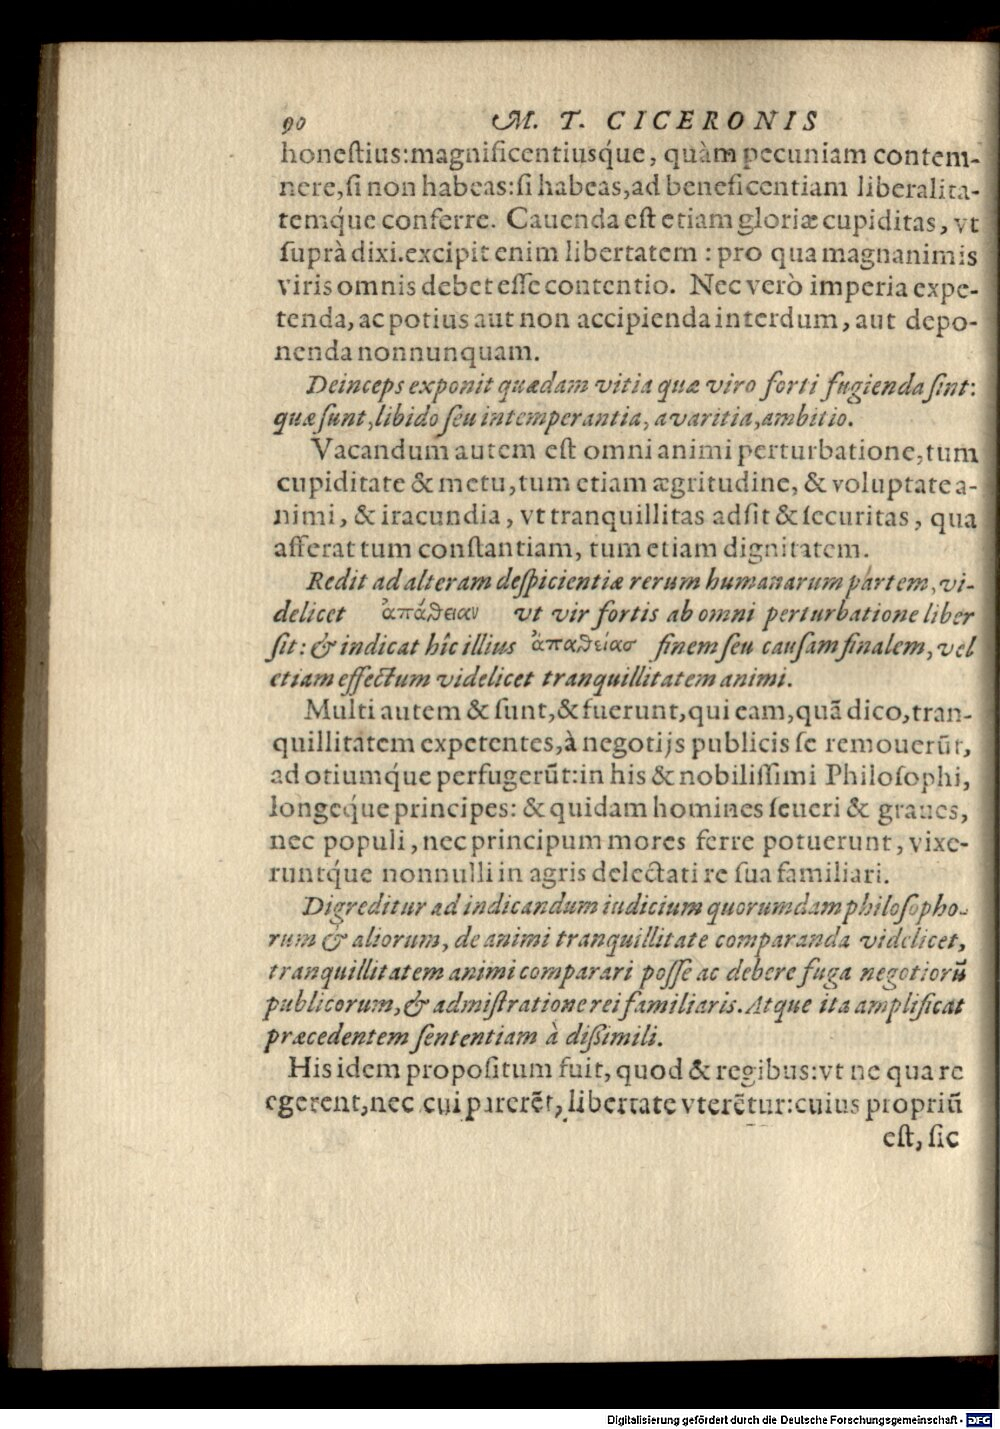 90 M. T. CICERONIS
honestius:magnificentiusq́ue, quàm pecuniam contem-
nere, si non habeas: si habeas, ad beneficentiam liberalita-
temq́ue conferre. Cauenda est etiam gloriæ cupiditas, vt
suprà dixi. excipit enim libertatem : pro qua magnanimis
viris omnis debet esse contentio. Nec verò imperia expe-
tenda, ac potius aut non accipienda interdum, aut depo-
nenda nonnunquam.
Deinceps exponit quædam vitia quæ viro forti fugienda sint:
quæ sunt, libido seu intemperantia, avaritia, ambitio.
Vacandum autem est omni animi perturbatione, tum
cupiditate & metu, tum etiam ægritudine, & voluptate a-
nimi, & iracundia, vt tranquillitas adsit & securitas, qua
afferat tum constantiam, tum etiam dignitatem.
Redit ad alteram despicientiæ rerum humanarum partem, vi-
delicet ἀπάθειαν vt vir fortis ab omni perturbatione liber
sit: & indicat hîc illius ἀπαθείας finem seu causam finalem, vel
etiam effectum videlicet tranquillitatem animi.
Multi autem & sunt, & fuerunt, qui eam, quã dico, tran-
quillitatem expetentes, à negotijs publicis se remouerũt,
ad otiumq́ue perfugerũt: in his & nobilissimi Philosophi,
longeq́ue principes: & quidam homines seueri & graues,
nec populi, nec principum mores ferre potuerunt, vixe-
runtq́ue nonnulli in agris delectati re sua familiari.
Digreditur ad indicandum iudicium quorumdam philosopho-
rum & aliorum, de animi tranquillitate comparanda videlicet,
tranquillitatem animi comparari posse ac debere fuga negotiorũ
publicorum, & admistratione rei familiaris. Atque ita amplificat
præcedentem sententiam à dissimili.
His idem propositum fuit, quod & regibus: vt ne qua re
egerent, nec cui parerẽt, libertate vterẽtur: cuius propriũ
est, sic
Digitalisierung gefördert durch die Deutsche Forschungsgemeinschaft - DFG